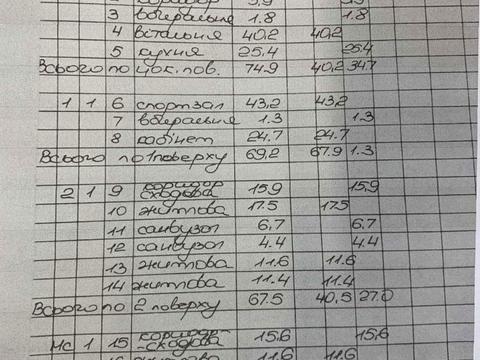 3 вбиральня 1.8 1.8
4 вітальня 40,2 40,2
5 кухня 25.4 25.4
Всього по цок. пов. 74.9 40,2 34.7
1 1 6 спортзал 43,2 43,2
7 вбиральня 1.3 1.3
8 кабінет 24.7 24.7
Всього по 1 поверху 69,2 67.9 1.3
2 1 9 коридор сходова 15,9 15,9
10 житлова 17.5 17.5
11 санвузол 6,7 6.7
12 санвузол 4.4 4.4
13 житлова 11.6 11.6
14 житлова 11.4 11.4
Всього по 2 поверху 67.5 40,5 27.0
мс 1 15 коридор-сходова 15,6 15,6
11,6 11,6